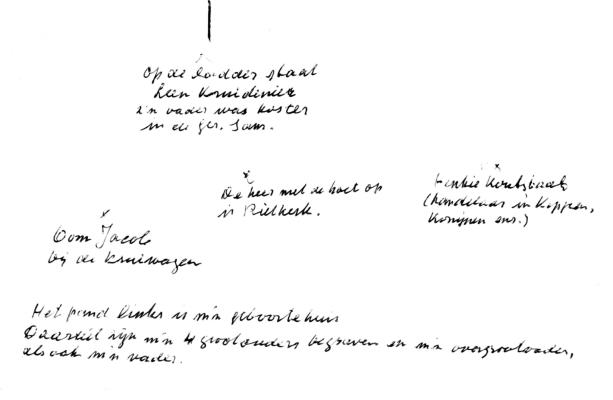 Op de ladder staat
Leen Kruidenier
z'n vader was koster
in de ger. Gem.
De heer met de hoed op
is Rietkerk.
(handelaar in Kippen,
Konijnen enz.)
Oom Jacob
bij de kruiwagen
Het pand links is m'n geboortehuis
zijn m'n 4 grootouders begraven en m'n overgrootvader,
als ook m'n vader.